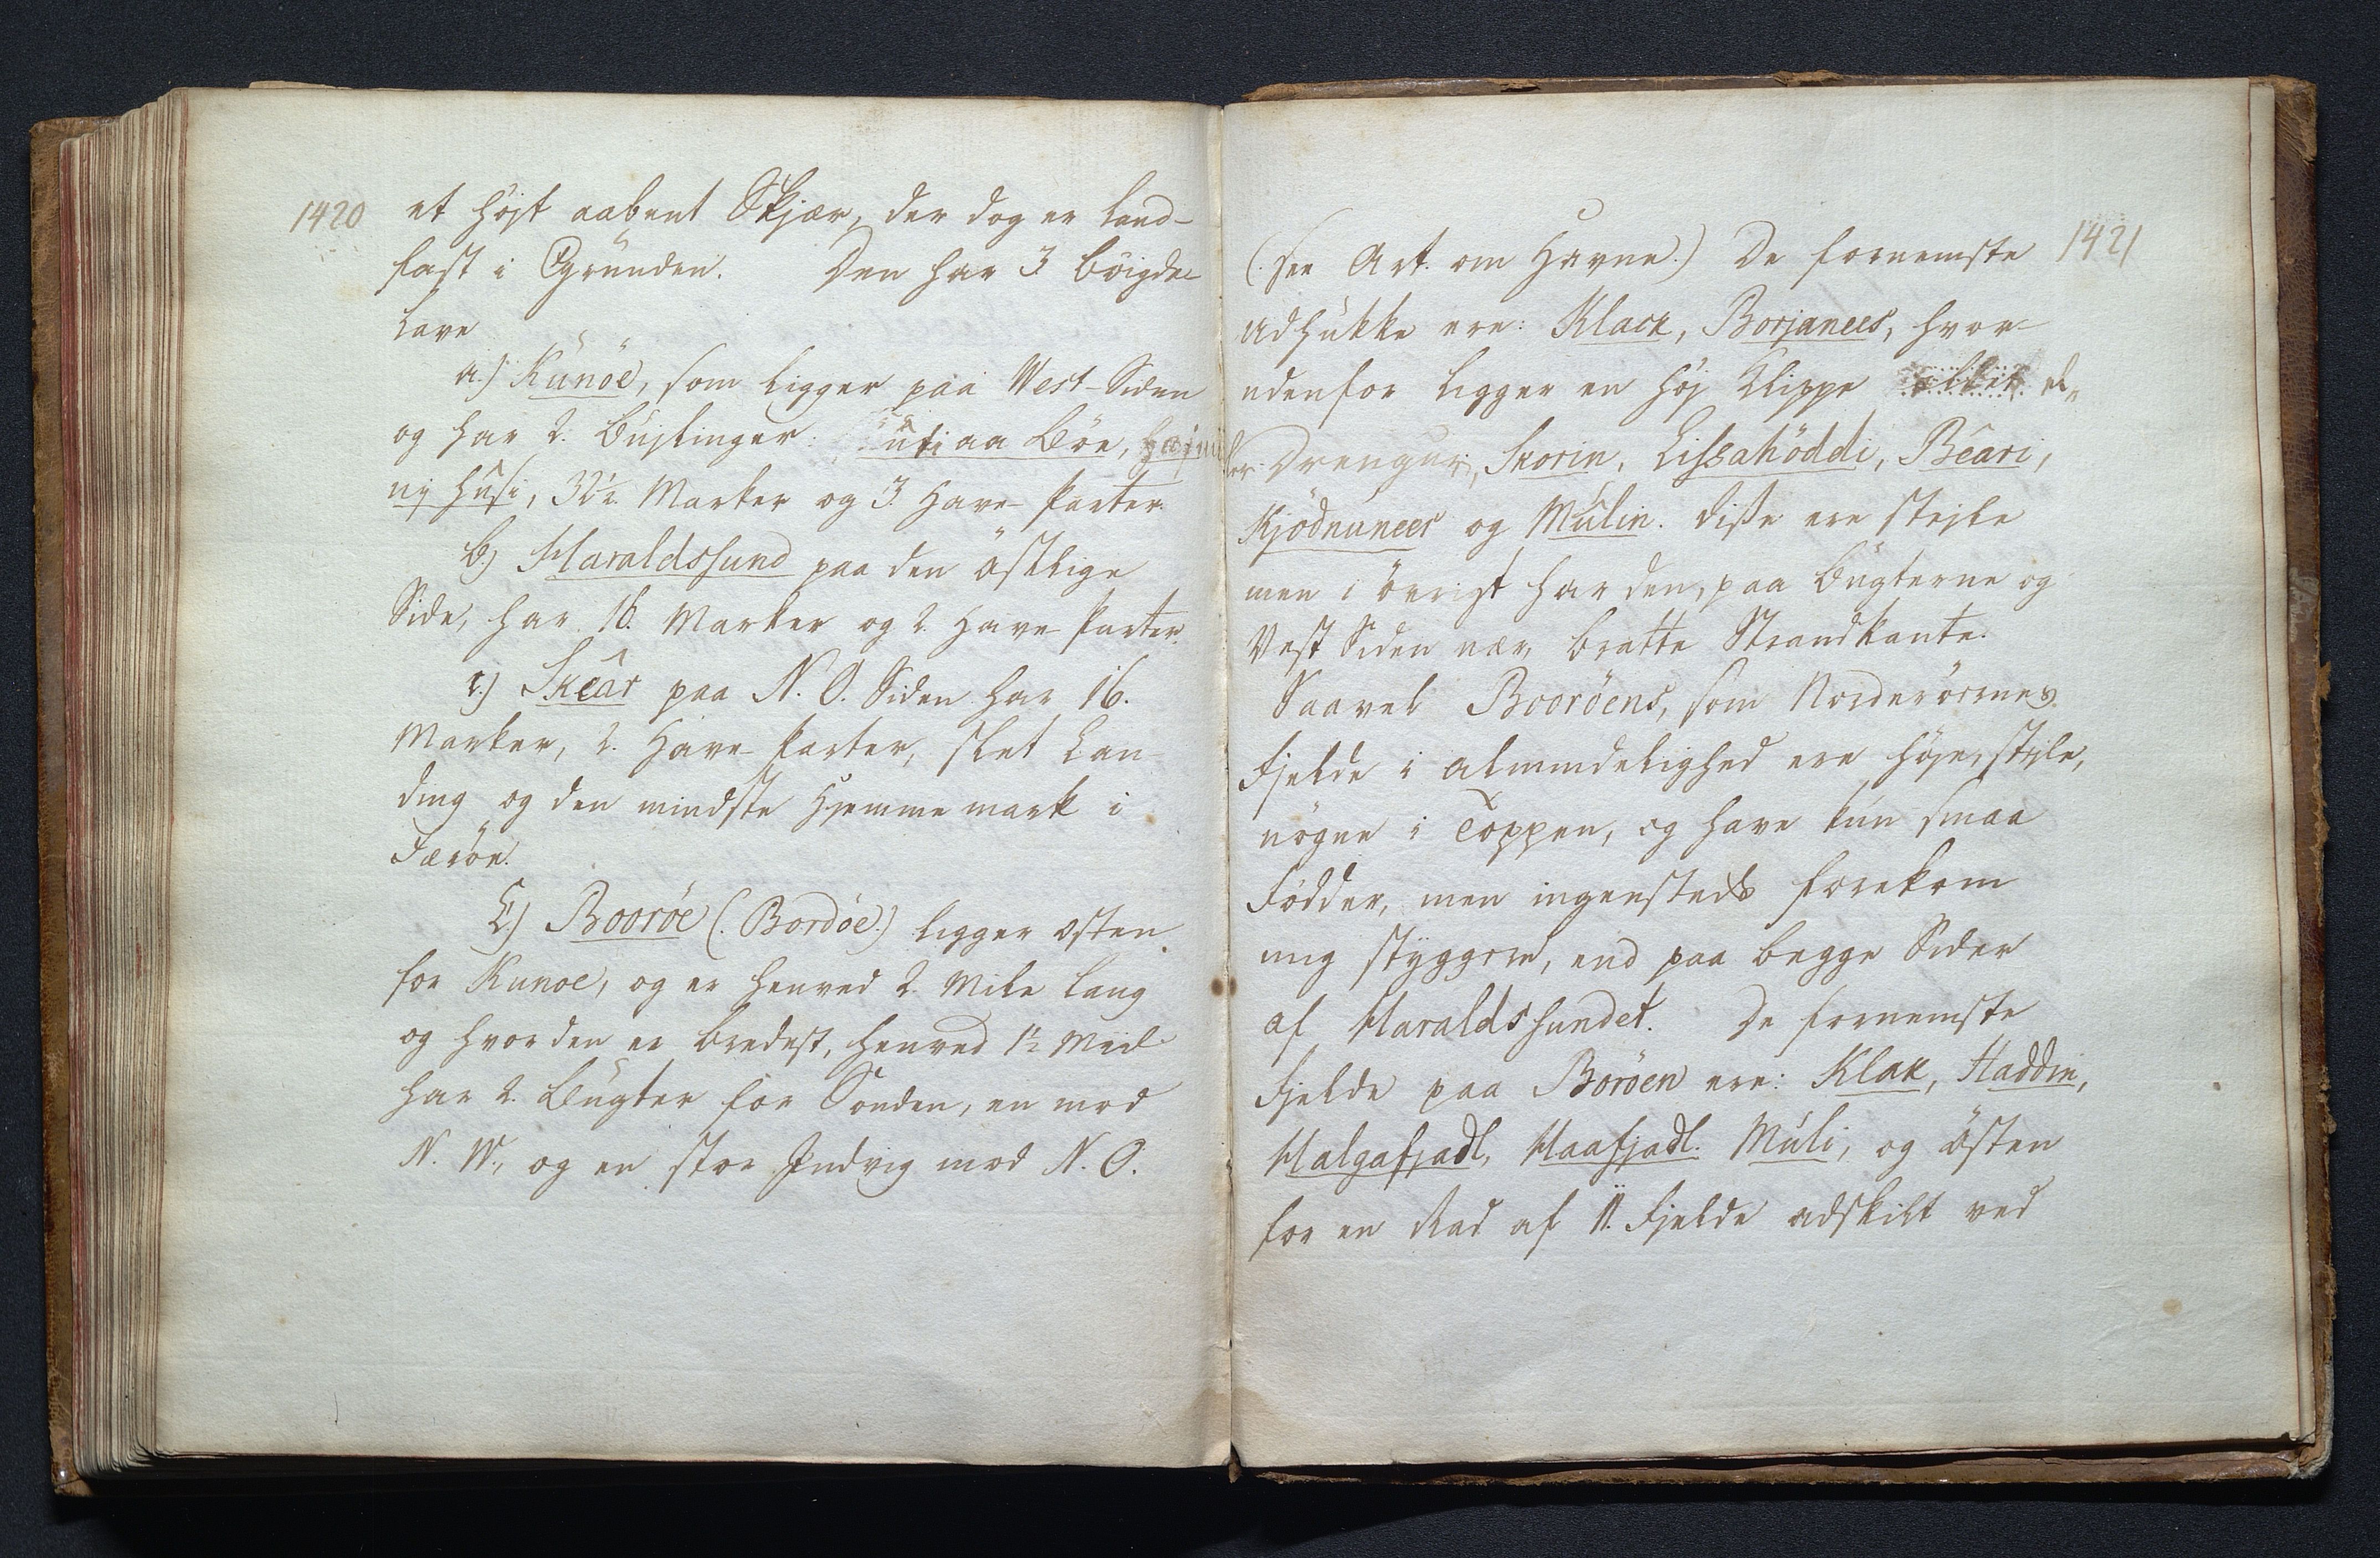 1420
et højt aabent Skjær, der dog er land-
fast i Grunden. Den har 3 böigde-
lave
a.) Kunöe, som ligger paa West-Siden
og har 2. Büjlinger: uti aa Böe,
nÿ Husi, 32½ Marker og 3. Have-Parter.
b.) Haraldssund paa den östlige
Side, har 16. Marker og 2. Have-Parter.
c.) Skeâr paa N. O. Siden har 16.
Marker, 2. Have-Parter, slet Lan-
ding og den mindste Hjemme mark i
Færöe.
C.) Booröe (Bordöe.) ligger östen
for Kunoe, og er henved 2. Mile lang
og hvor den er bredest, henved 1½ Miil
har 2. Bugter for Sönden, en mod
N. W., og en stor Indvig mod N. O.
1421
(see Art. om Havne.) De fornemste
Udhukke ere: Klack, Borjanees, hvor-
udenfor ligger en høj Klippe el-
ler Drengur, Skorin, Lissahöddi, Bêari,
Kjödnunees og Múlin. disse ere stejle
men i övrigt har den, paa Bugterne og
Vest Siden nær, bratte Strandkante.
Saavel Booröens, som Norderöernes
Fjelde i almindelighed ere høje, stejle,
nögne i Toppen, og have kun smaa
Födder, men ingensteds forekom
mig styggere, end paa begge Sider
af Haraldssundet. De fornemste
Fjelde paa Boröen ere: Klak, Haddin,
Halgafjadl, Haafjadl. Múli, og östen
for en Rad af 11. Fjelde adskilt ved